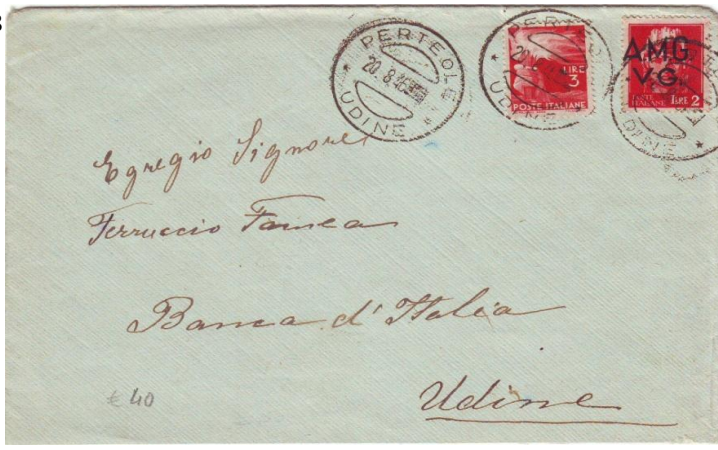 PERTEOLE
20.8.46
UDINE
LIRE
3
POSTE ITALIANE
AMG
V.G.
POSTE
ITALIANE
LIRE 2
Egregio Signore
Ferruccio
Banca d'Italia
Udine
€ 40